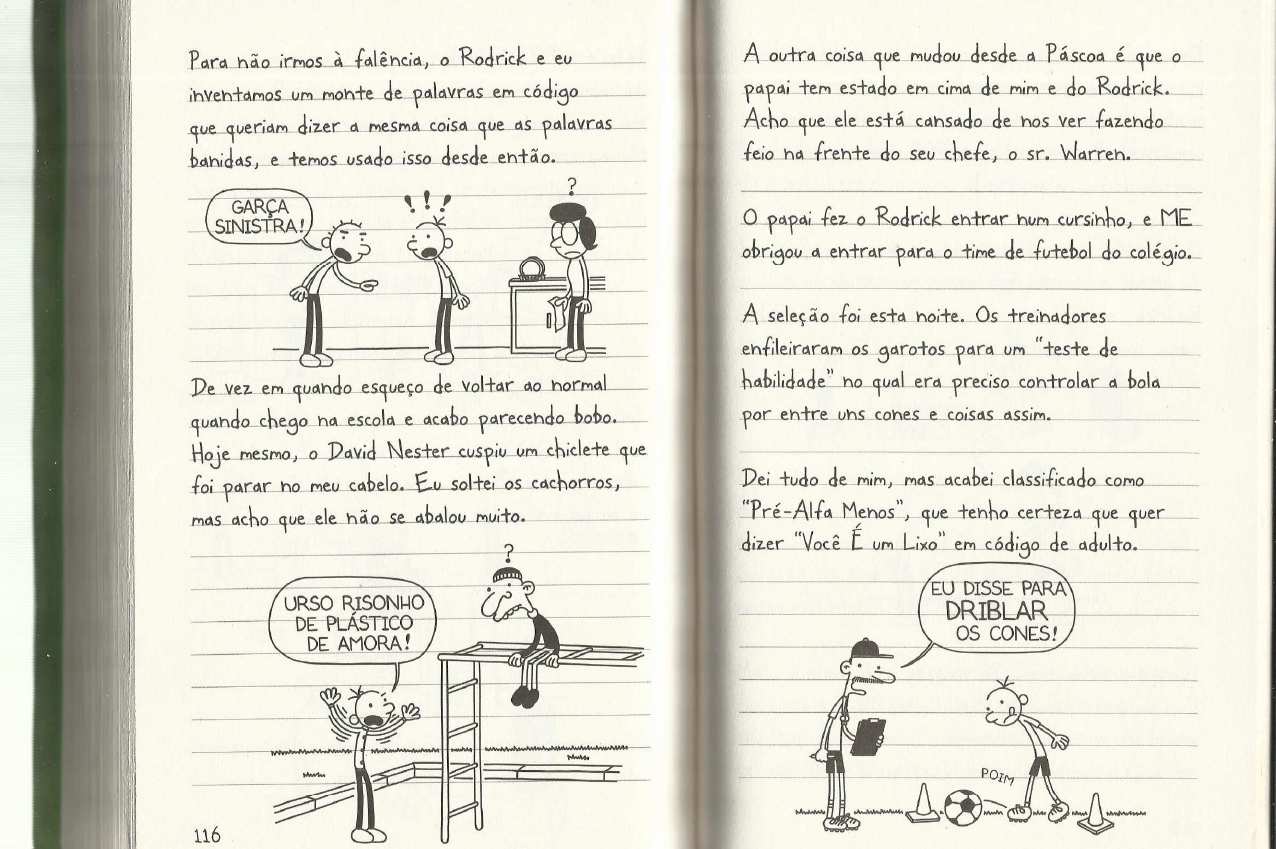 Para não irmos à falência, o Rodrick e eu
inventamos um monte de palavras em código
que queriam dizer a mesma coisa que as palavras
banidas, e temos usado isso desde então.
?
!!!
GARÇA
SINISTRA!
De vez em quando esqueço de voltar ao normal
quando chego na escola e acabo parecendo bobo.
Hoje mesmo, o David Nester cuspiu um chiclete que
foi parar no meu cabelo. Eu soltei os cachorros,
mas acho que ele não se abalou muito.
?
URSO RISONHO
DE PLÁSTICO
DE AMORA!
116
A outra coisa que mudou desde a Páscoa é que o
papai tem estado em cima de mim e do Rodrick.
Acho que ele está cansado de nos ver fazendo
feio na frente do seu chefe, o sr. Warren.
O papai fez o Rodrick entrar num cursinho, e ME
obrigou a entrar para o time de futebol do colégio.
A seleção foi esta noite. Os treinadores
enfileiraram os garotos para um "teste de
habilidade" no qual era preciso controlar a bola
por entre uns cones e coisas assim.
Dei tudo de mim, mas acabei classificado como
"Pré-Alfa Menos", que tenho certeza que quer
dizer "Você É um Lixo" em código de adulto.
EU DISSE PARA
DRIBLAR
OS CONES!
POIM